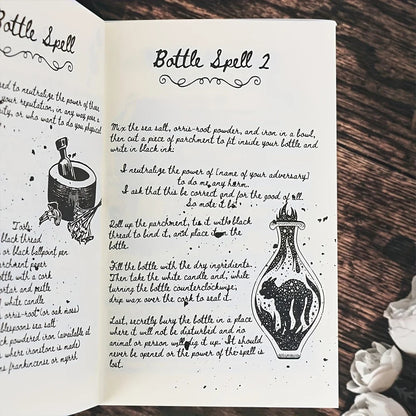 Bottle Spell
used to neutralize the power of those
your reputation, in any way pose a
or who want to do you physical
Tools:
black thread
or black ballpoint pen
parchment paper
bottle with a cork
mortar and pestle
white candle
orris-root (or oak moss)
tablespoons sea salt
black powdered iron (available at
where ironstone is made)
frankincense or myrrh
Bottle Spell 2
Mix the sea salt, orris-root powder, and iron in a bowl,
then cut a piece of parchment to fit inside your bottle and
write in black ink:
I neutralize the power of (name of your adversary)
to do me any harm.
I ask that this be correct and for the good of all.
So mote it be.
Roll up the parchment, tie it with black
thread to bind it, and place it in the
bottle.
Fill the bottle with the dry ingredients.
Then take the white candle and, while
turning the bottle counterclockwise,
drip wax over the cork to seal it.
Last, secretly bury the bottle in a place
where it will not be disturbed and no
animal or person will dig it up. It should
never be opened or the power of the spell is
lost.